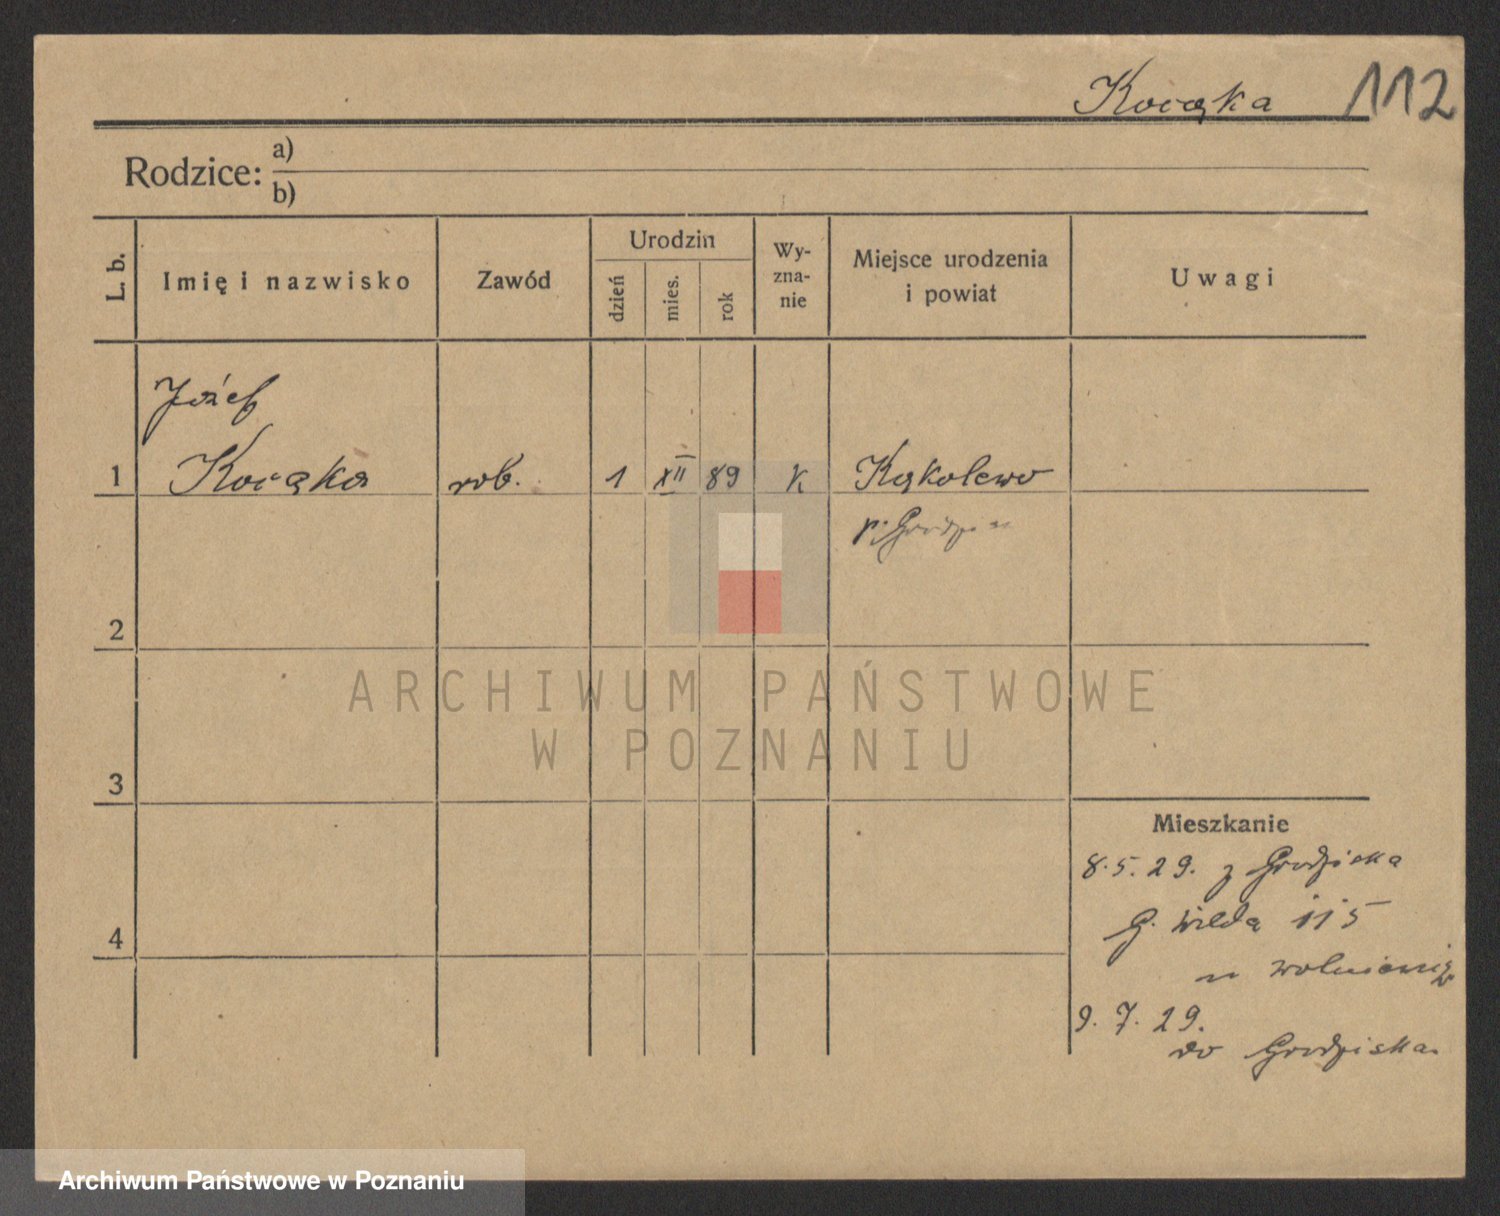 Kocąka 112
Rodzice: a)
b)
L. b.
Imię i nazwisko
Zawód
Urodzin
dzień
mies.
rok
Wy-
zna-
nie
Miejsce urodzenia
i powiat
Uwagi
Józef
1 Kocąka rob. 1 XII 89 K Kąkolewo
p. Grodzisk
2
ARCHIWUM PAŃSTWOWE
W POZNANIU
3
Mieszkanie
8.5.29. z Grodziska
G. Wilda 115
4
9.7.29.
do Grodziska.
Archiwum Państwowe w Poznaniu